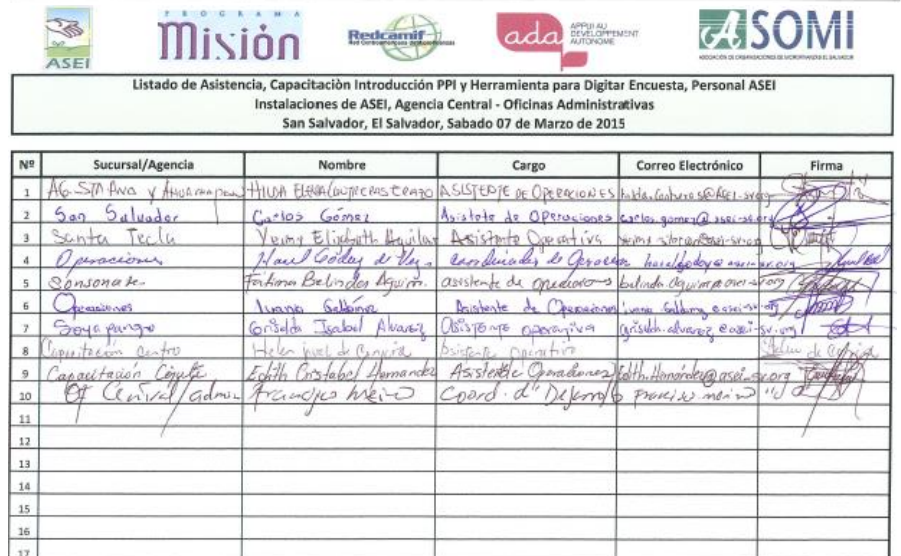 ASEI
PROGRAMA
Misión
Redcamif
Red Centroamericana de Microfinanzas
ada
APPUI AU
DÉVELOPPEMENT
AUTONOME
ASOMI
ASOCIACIÓN DE ORGANIZACIONES DE MICROFINANZAS EL SALVADOR
Listado de Asistencia, Capacitaciòn Introducción PPI y Herramienta para Digitar Encuesta, Personal ASEI
Instalaciones de ASEI, Agencia Central - Oficinas Administrativas
San Salvador, El Salvador, Sabado 07 de Marzo de 2015
Nº Sucursal/Agencia Nombre Cargo Correo Electrónico Firma
1 AG. STA Ana y Ahuachapan HILDA ELENA CONTRERAS ASISTENTE DE OPERACIONES
2 San Salvador Carlos Gómez Asistete de Operaciones carlos.gomez@asei-sv.org
3 Santa Tecla Yeimy Elizabeth Aguilar Asistente Operativa
4 Operaciones Godoy de
5 Sonsonate Fátima Belinda asistente de
6 Operaciones Asistente de Operaciones
7 Soyapango Griselda Isabel Alvarez Asistente operativa griselda.alvarez@asei-sv.org
8 Capacitación centro Helen de Asistente operativo
9 Capacitación Edith Cristabel Hernandez Asistente Operaciones Edith.Hernández@asei-sv.org
10 Of Central/admon Francisco Merino Coord. d'
11
12
13
14
15
16
17